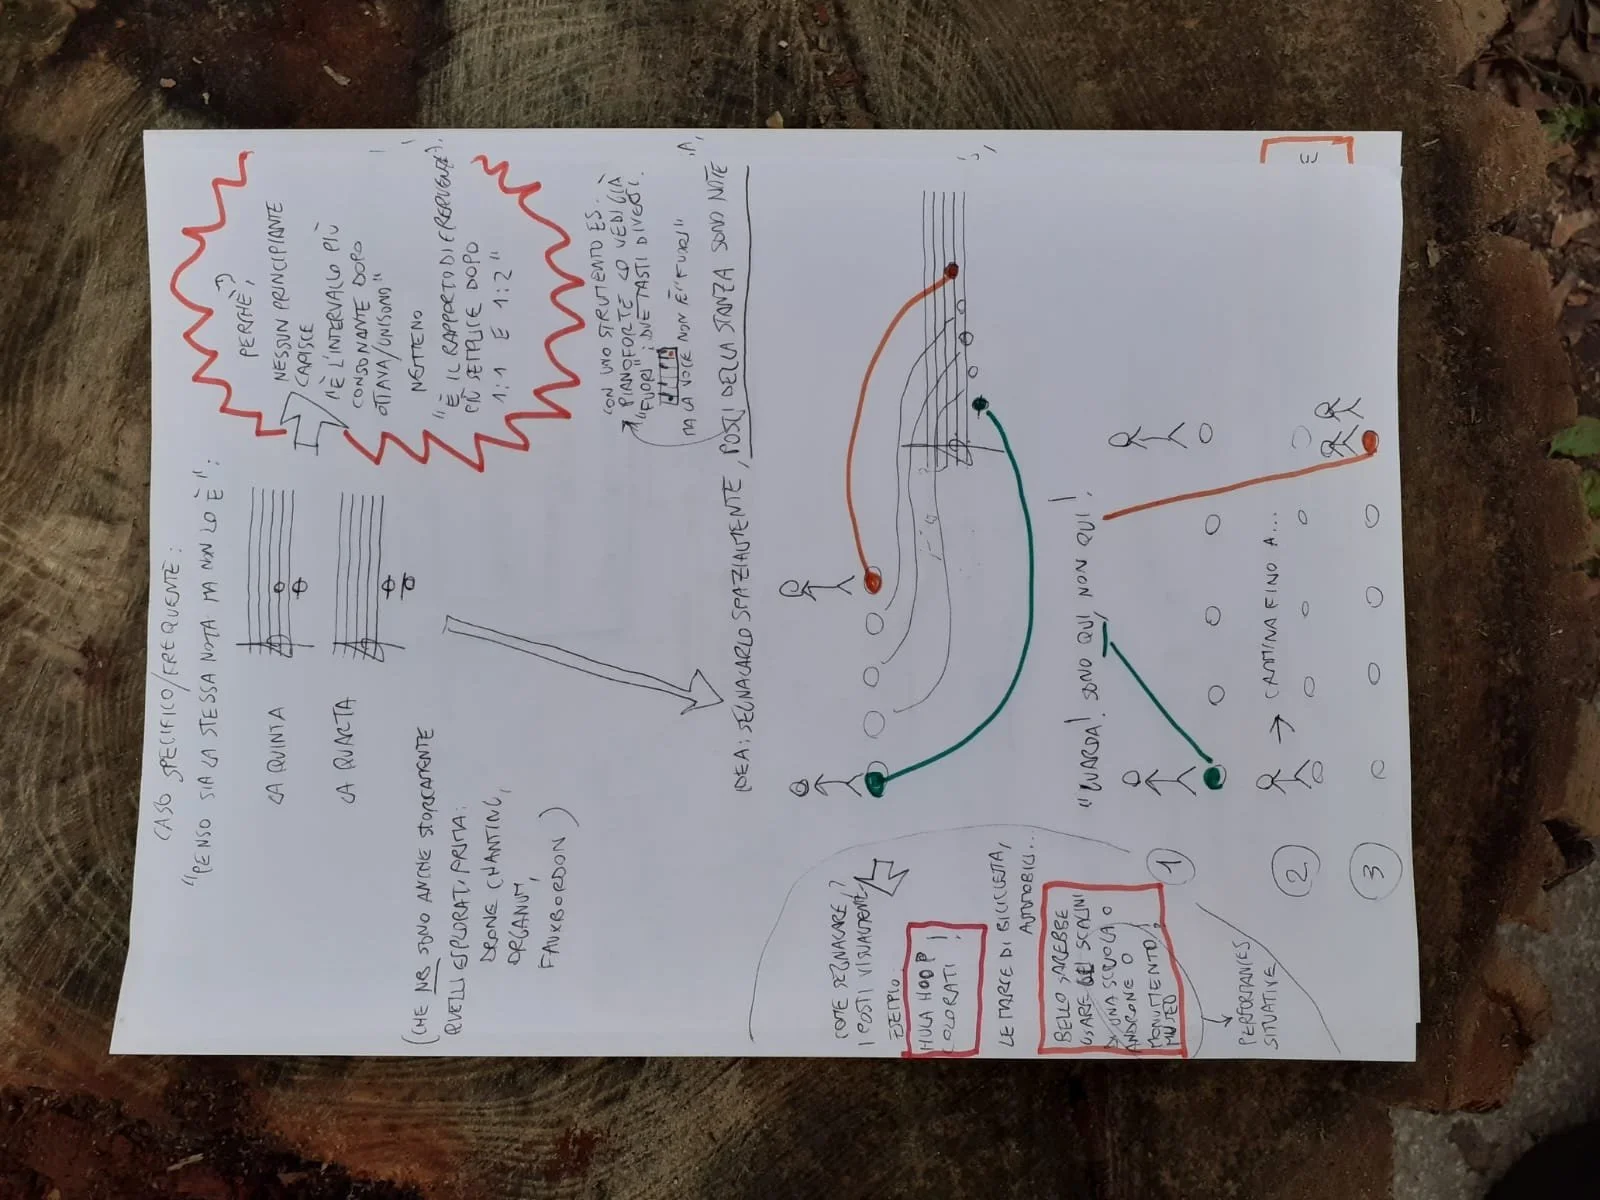 CASO SPECIFICO/FREQUENTE:
"PENSO SIA LA STESSA NOTA MA NON LO È":
LA QUINTA
LA QUARTA
(CHE NB SONO ANCHE STORICAMENTE
QUELLI ESPLORATI PRIMA:
DRONE CHANTING,
ORGANUM,
FAUXBORDON)
PERCHÈ?
NESSUN PRINCIPIANTE
CAPISCE
"È L'INTERVALLO PIÙ
CONSONANTE DOPO
OTTAVA/UNISONO"
NETTENO
"È IL RAPPORTO DI FREQUENZE
PIÙ SEMPLICE DOPO
1:1 E 1:2"
CON UNO STRUMENTO ES.
PIANOFORTE LO VEDI GIÀ
"FUORI": DUE TASTI DIVERSI.
MA LA VOCE NON È "FUORI"
IDEA: SEGNACARLO SPAZIALMENTE, POSTI DELLA STANZA SONO NOTE
"GUARDA! SONO QUI, NON QUI!
COME SEGNACARE
I POSTI VISUALMENTE?
ESEMPIO:
HULA HOOP
COLORATI!
LE MARCE DI BICICLETTA,
AUTOMOBILI...
BELLO SAREBBE
USARE GLI SCALINI
DI UNA SCUOLA O
ANDRONE O
MONUMENTO!
MUSEO
PERFORMANCES
SITUATIVE
1
2 → CAMMINA FINO A...
3
E